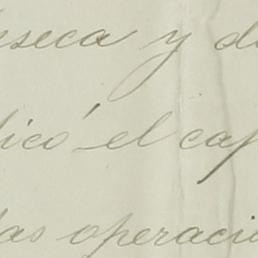 eseca y d
icó el cap
las operacio